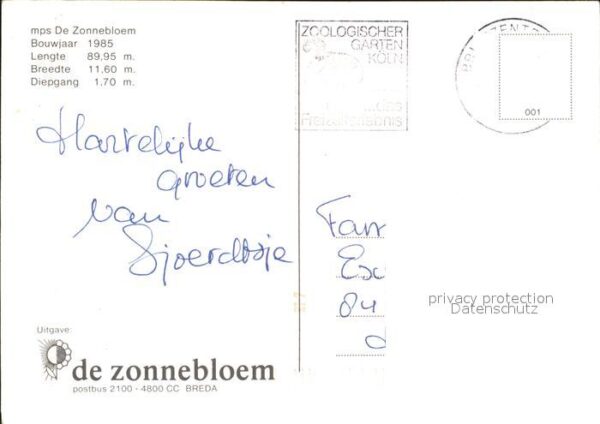 mps De Zonnebloem
Bouwjaar 1985
Lengte 89,95 m.
Breedte 11,60 m.
Diepgang 1.70 m.
ZOOLOGISCHER
GARTEN
KÖLN
Freizeiterlebnis
001
Hartelijke
groeten
van
Sjoerdtsje
Fam
Esc
84
privacy protection
Datenschutz
Uitgave:
de zonnebloem
postbus 2100 - 4800 CC BREDA